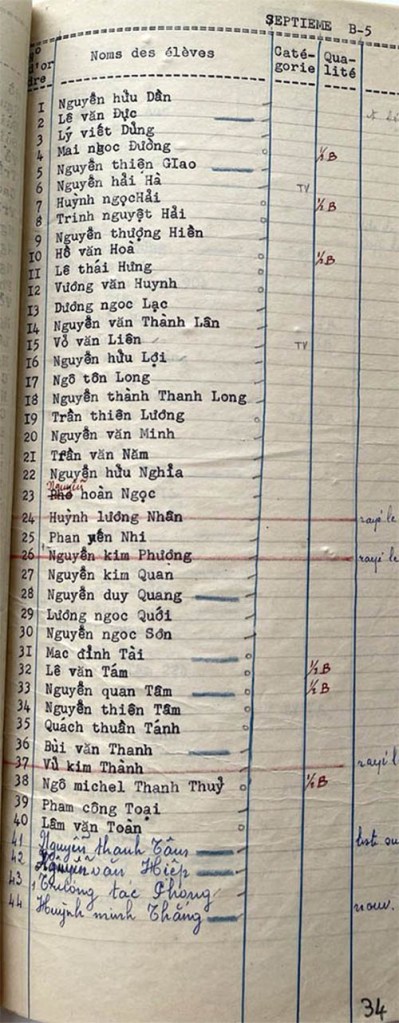 SEPTIEME B-5
Noms des élèves Caté-gorie Qua-lité
1 Nguyễn hửu Dần
2 Lê văn Đực
3 Lý viết Dũng
4 Mai ngọc Đường ½ B
5 Nguyễn thiện GIao
6 Nguyễn hải Hà TV
7 Huỳnh ngọcHải ½ B
8 Trinh nguyệt Hải
9 Nguyễn thượng Hiền
10 Hồ văn Hoà ½ B
11 Lê thái Hưng
12 Vương văn Huynh
13 Dương ngoc Lạc
14 Nguyễn văn Thành Lân
15 Vỏ văn Liên TV
16 Nguyễn hửu Lợi
17 Ngô tôn Long
18 Nguyễn thành Thanh Long
19 Trần thiên Lương
20 Nguyễn văn Minh
21 Trần văn Năm
22 Nguyễn hửu Nghĩa
23 Nguyễn hoàn Ngọc
24 Huỳnh lương Nhân rayé le
25 Phan yến Nhi
26 Nguyễn kim Phượng rayé le
27 Nguyễn kim Quan
28 Nguyễn duy Quang
29 Lương ngoc Quới
30 Nguyễn ngoc Sơn
31 Mac đỉnh Tài
32 Lê văn Tám ½ B
33 Nguyễn quan Tâm ½ B
34 Nguyễn thiện Tâm
35 Quách thuần Tánh
36 Bùi văn Thanh
37 Vủ kim Thành
38 Ngô michel Thanh Thuỷ ½ B
39 Pham công Toại
40 Lâm văn Toàn
41 Nguyễn thanh Tâm
42 Nguyễn văn Hiệp
43 Trương tac Phong
44 Huỳnh minh Thắng nouv.
34